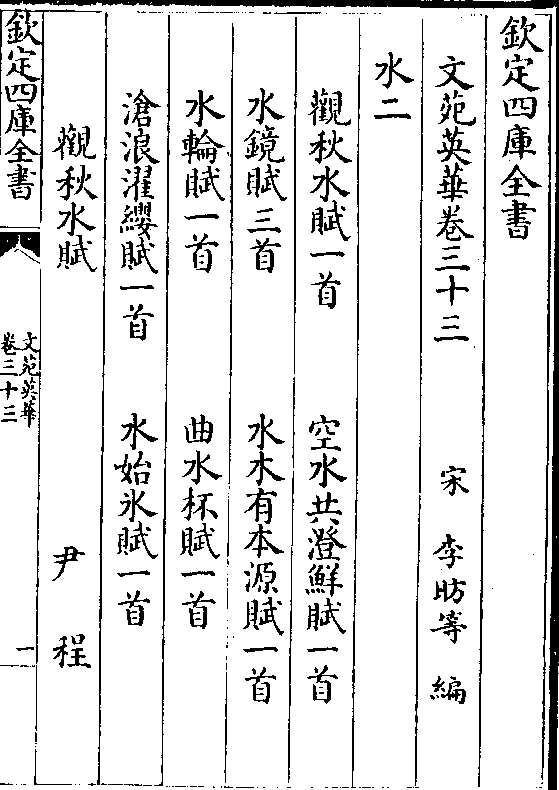 欽定四庫全書
文苑英華卷三十三　宋　李昉等　編
水二
觀秋水賦一首　空水共澄鮮賦一首
水鏡賦三首　水木有本源賦一首
水輪賦一首　曲水杯賦一首
滄浪濯纓賦一首　水始氷賦一首
觀秋水賦　尹　程
欽定四庫全書　文苑英華　卷三十三　一